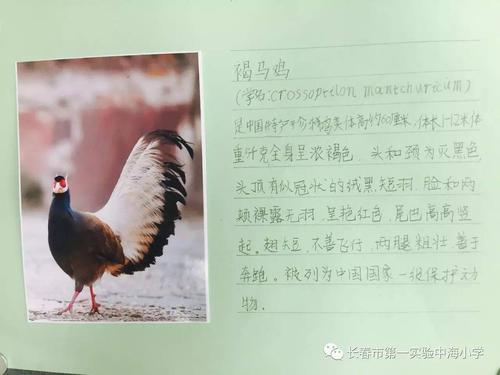 褐马鸡
(学名:crossoptilon mantchuricum)
是中国特产 体高约60厘米,体长1-1.2米体
重 全身呈浓褐色,头和颈为灰黑色,
头顶有似冠状的绒黑短羽.脸和两
颊裸露无羽.呈艳红色,尾巴高高竖
起.翅短,不善飞行,两腿粗壮,善于
奔跑。被列为中国国家一级保护动
物.
长春市第一实验中海小学